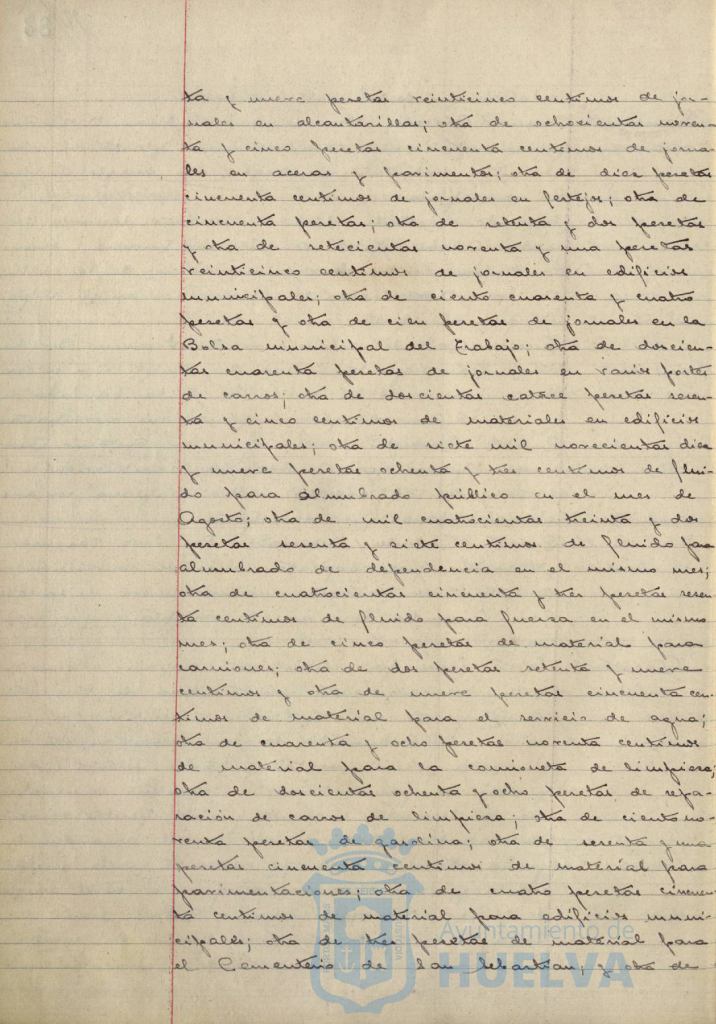 ta y nueve pesetas veinticinco centimos de jor-
nales en alcantarillas; otra de ochocientas noven-
ta y cinco pesetas cincuenta centimos de jorna-
les en aceras y pavimentos; otra de diez pesetas
cincuenta centimos de jornales en festejos; otra de
cincuenta pesetas; otra de setenta y dos pesetas
y otra de setecientas noventa y una pesetas
veinticinco centimos de jornales en edificios
municipales; otra de ciento cuarenta y cuatro
pesetas y otra de cien pesetas de jornales en la
Bolsa municipal del Trabajo; otra de doscien-
tas cuarenta pesetas de jornales en varios portes
de carros; otra de doscientas catorce pesetas sesen-
ta y cinco centimos de materiales en edificios
municipales; otra de siete mil novecientas diez
y nueve pesetas ochenta y tres centimos de flui-
do para alumbrado público en el mes de
Agosto; otra de mil cuatrocientas treinta y dos
pesetas sesenta y siete centimos de fluido para
alumbrado de dependencia en el mismo mes;
otra de cuatrocientas cincuenta y tres pesetas sesen-
ta centimos de fluido para fuerza en el mismo
mes; otra de cinco pesetas de material para
camiones; otra de dos pesetas setenta y nueve
centimos y otra de nueve pesetas cincuenta cen-
timos de material para el servicio de agua;
otra de cuarenta y ocho pesetas noventa centimos
de material para la camioneta de limpieza;
otra de doscientas ochenta y ocho pesetas de repa-
ración de carros de limpieza; otra de ciento no-
venta pesetas de gasolina; otra de sesenta y una
pesetas cincuenta centimos de material para
pavimentaciones; otra de cuatro pesetas cincuen-
ta centimos de material para edificios muni-
cipales; otra de tres pesetas de material para
el Cementerio de San Sebastian; y otra de
Ayuntamiento de
HUELVA